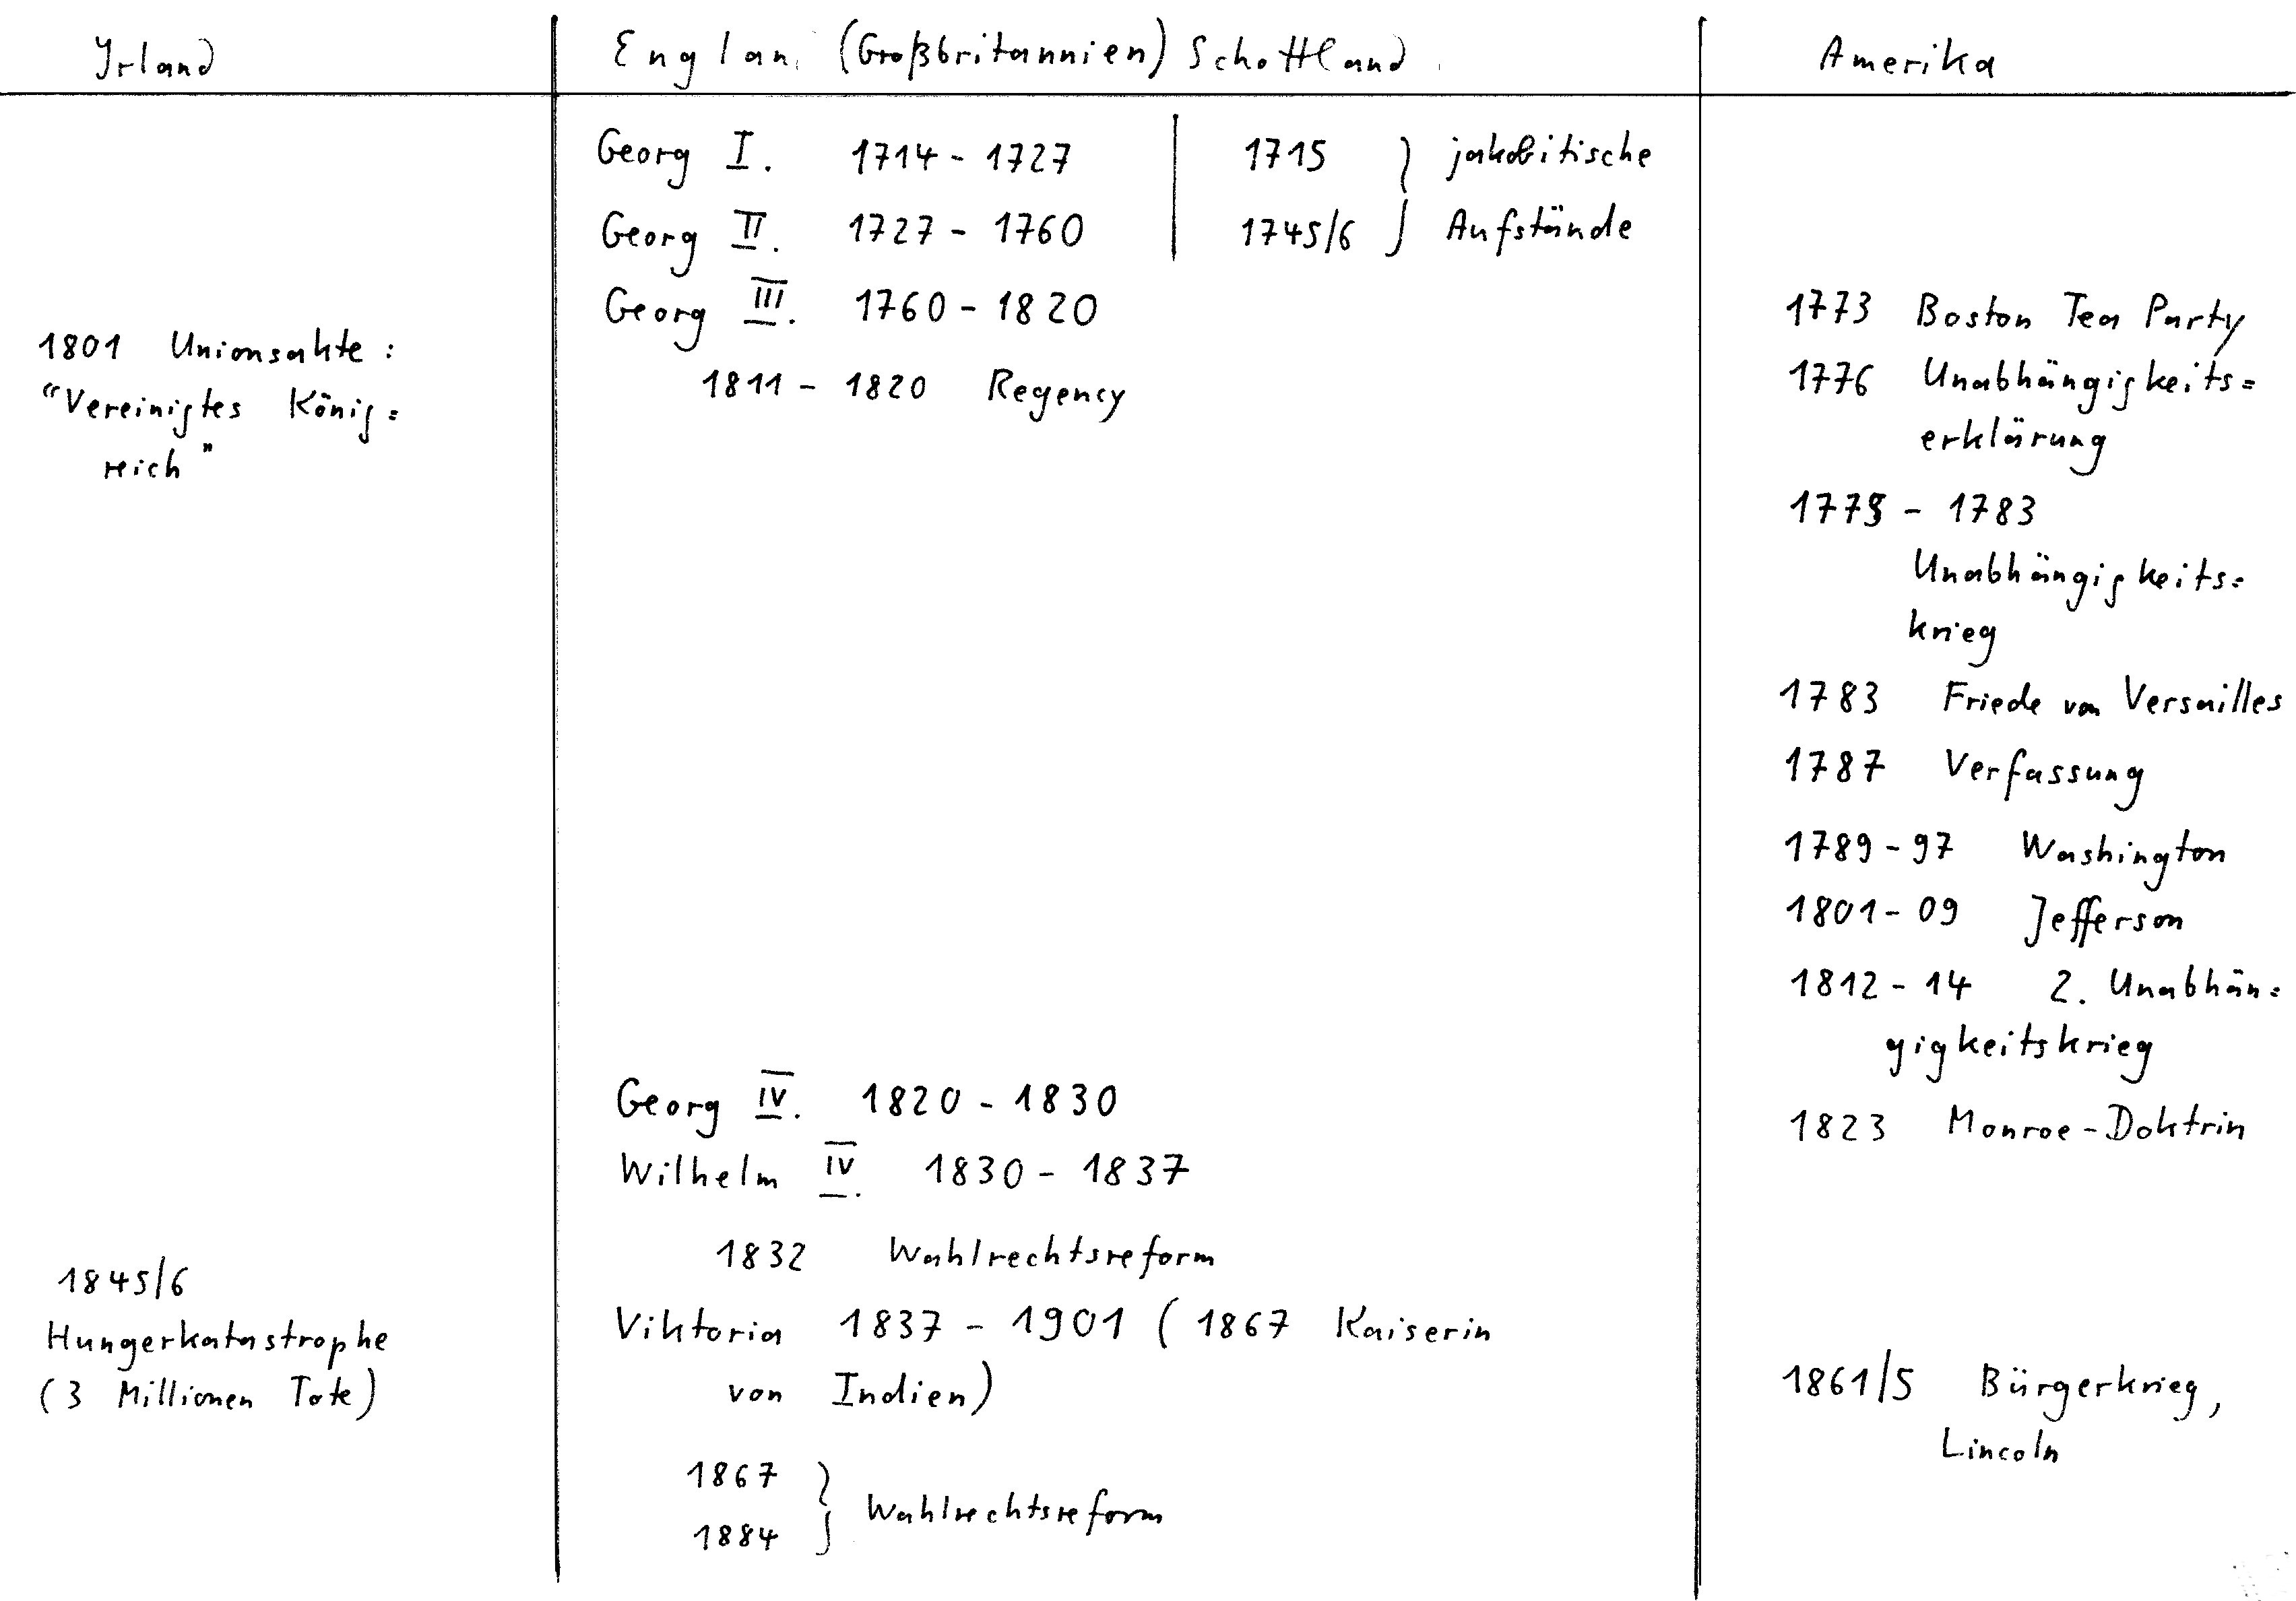 Irland
Englan (Großbritannien) Schottland
Amerika
1801 Unionsakte :
"Vereinigtes König=
reich"
1845/6
Hungerkatastrophe
(3 Millionen Tote)
Georg I. 1714 - 1727
1715 } jakobitische
Georg II. 1727 - 1760
1745/6 } Aufstände
Georg III. 1760 - 1820
1811 - 1820 Regency
Georg IV. 1820 - 1830
Wilhelm IV. 1830 - 1837
1832 Wahlrechtsreform
Viktoria 1837 - 1901 (1867 Kaiserin
von Indien)
1867
1884 } Wahlrechtsreform
1773 Boston Tea Party
1776 Unabhängigkeits=
erklärung
1775 - 1783
Unabhängigkeits=
krieg
1783 Friede von Versailles
1787 Verfassung
1789 - 97 Washington
1801 - 09 Jefferson
1812 - 14 2. Unabhän=
gigkeitskrieg
1823 Monroe-Doktrin
1861/5 Bürgerkrieg,
Lincoln